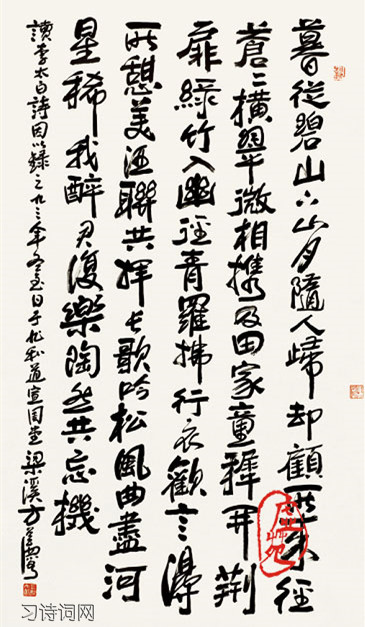 暮從碧山下山月隨人歸却顧所來徑
蒼々橫翠微相攜及田家童稚開荆
扉綠竹入幽徑青羅拂行衣歡言得
所憩美酒聯共揮長歌吟松風曲盡河
星稀我醉君復樂陶然共忘機
讀李太白詩因以錄之九三年冬至日于 梁溪方
习诗词网